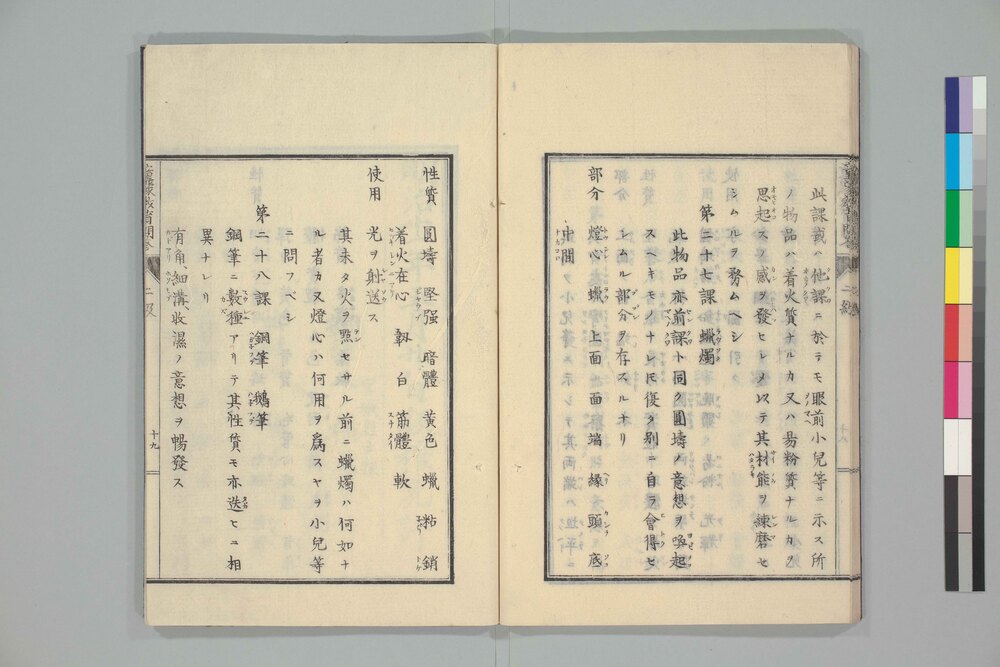 此課載ハ他課ニ於テモ眼前小兒等ニ示ス所
ノ物品ハ着火質ナルカ又ハ易粉質ナルカヲ
思起スヿ感ヲ發セシメ以テ其材能ヲ練磨セ
シムルヲ務ムヘシ
第二十七課 蠟燭
此物品亦前課ト同ク圓壔ノ意想ヲ喚起
スヘキモノナレ𪜈復タ別ニ自ラ會得セ
シムル部分ヲ存スルナリ
部分 燈心 蠟 上面 面 端 縁 頭 底
中間
性質 圓壔 堅强 暗體 黄色 蠟 粘 銷
着火在心 靱 白 筋體 軟
使用 光ヲ射送ス
其未タ火ヲ點セサル前ニ蠟燭ハ何如ナ
ル者カ又燈心ハ何用ヲ爲スヤヲ小兒等
ニ問フベシ
第二十八課 鋼筆 鵝筆
鋼筆ニ數種アリテ其性質モ亦迭ヒニ相
異ナレリ
有角、細溝、收濕ノ意想ヲ暢發ス
十九